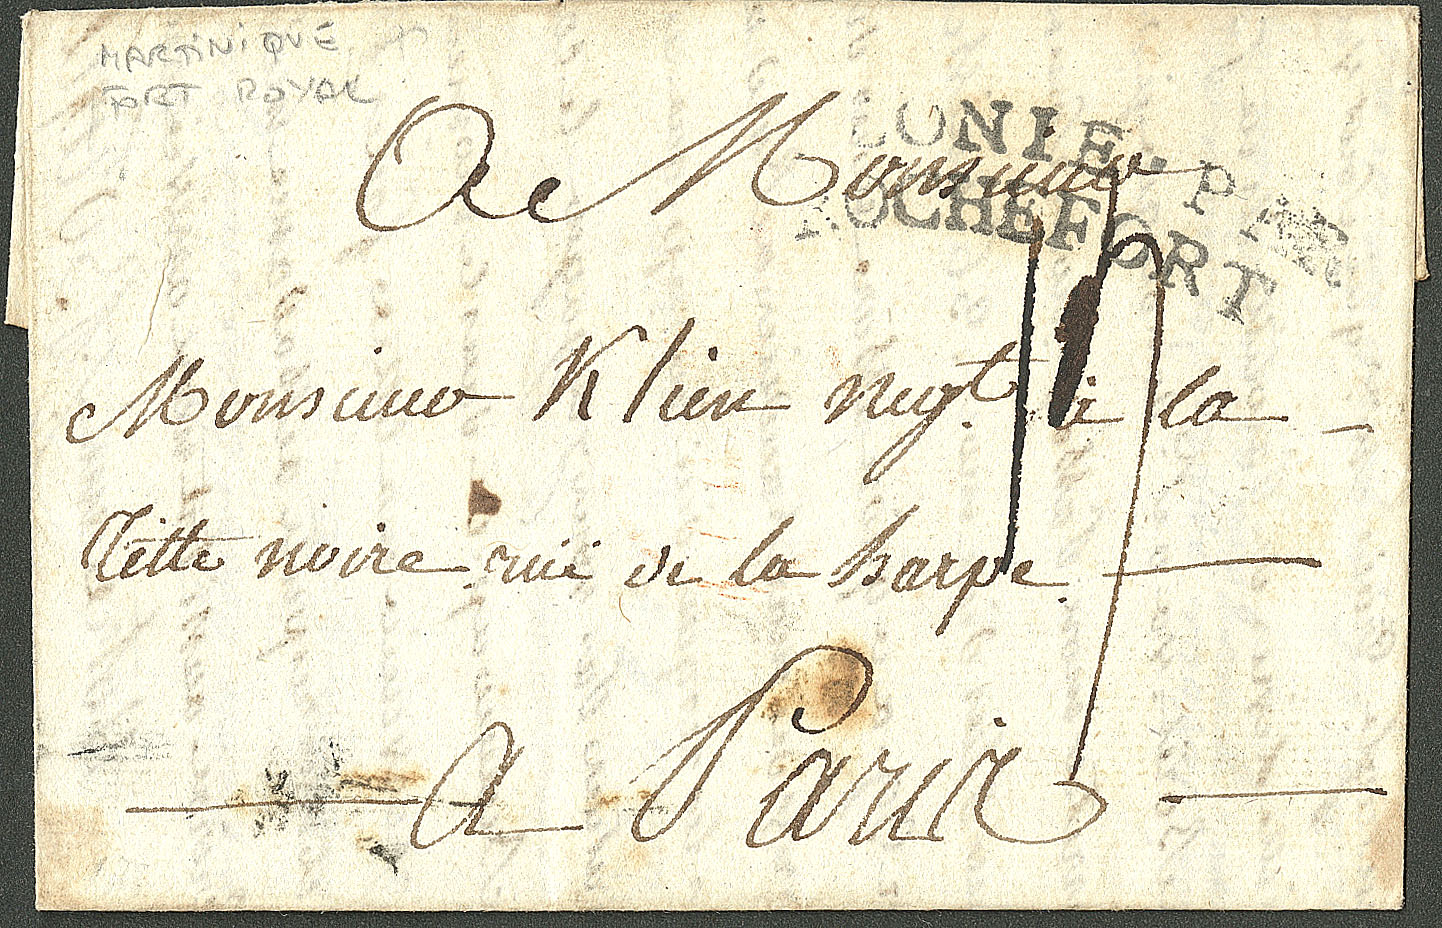 MARTINIQUE
FORT ROYAL
COLONIE-PAR
ROCHEFORT
A Monsieur
Monsieur Klien negt. à la
Tette noire rüe de la harpe.
A Paris